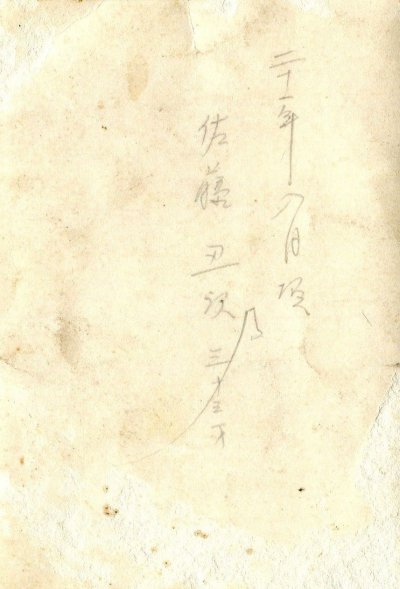 二十一年八月頃
佐藤丑 三十才